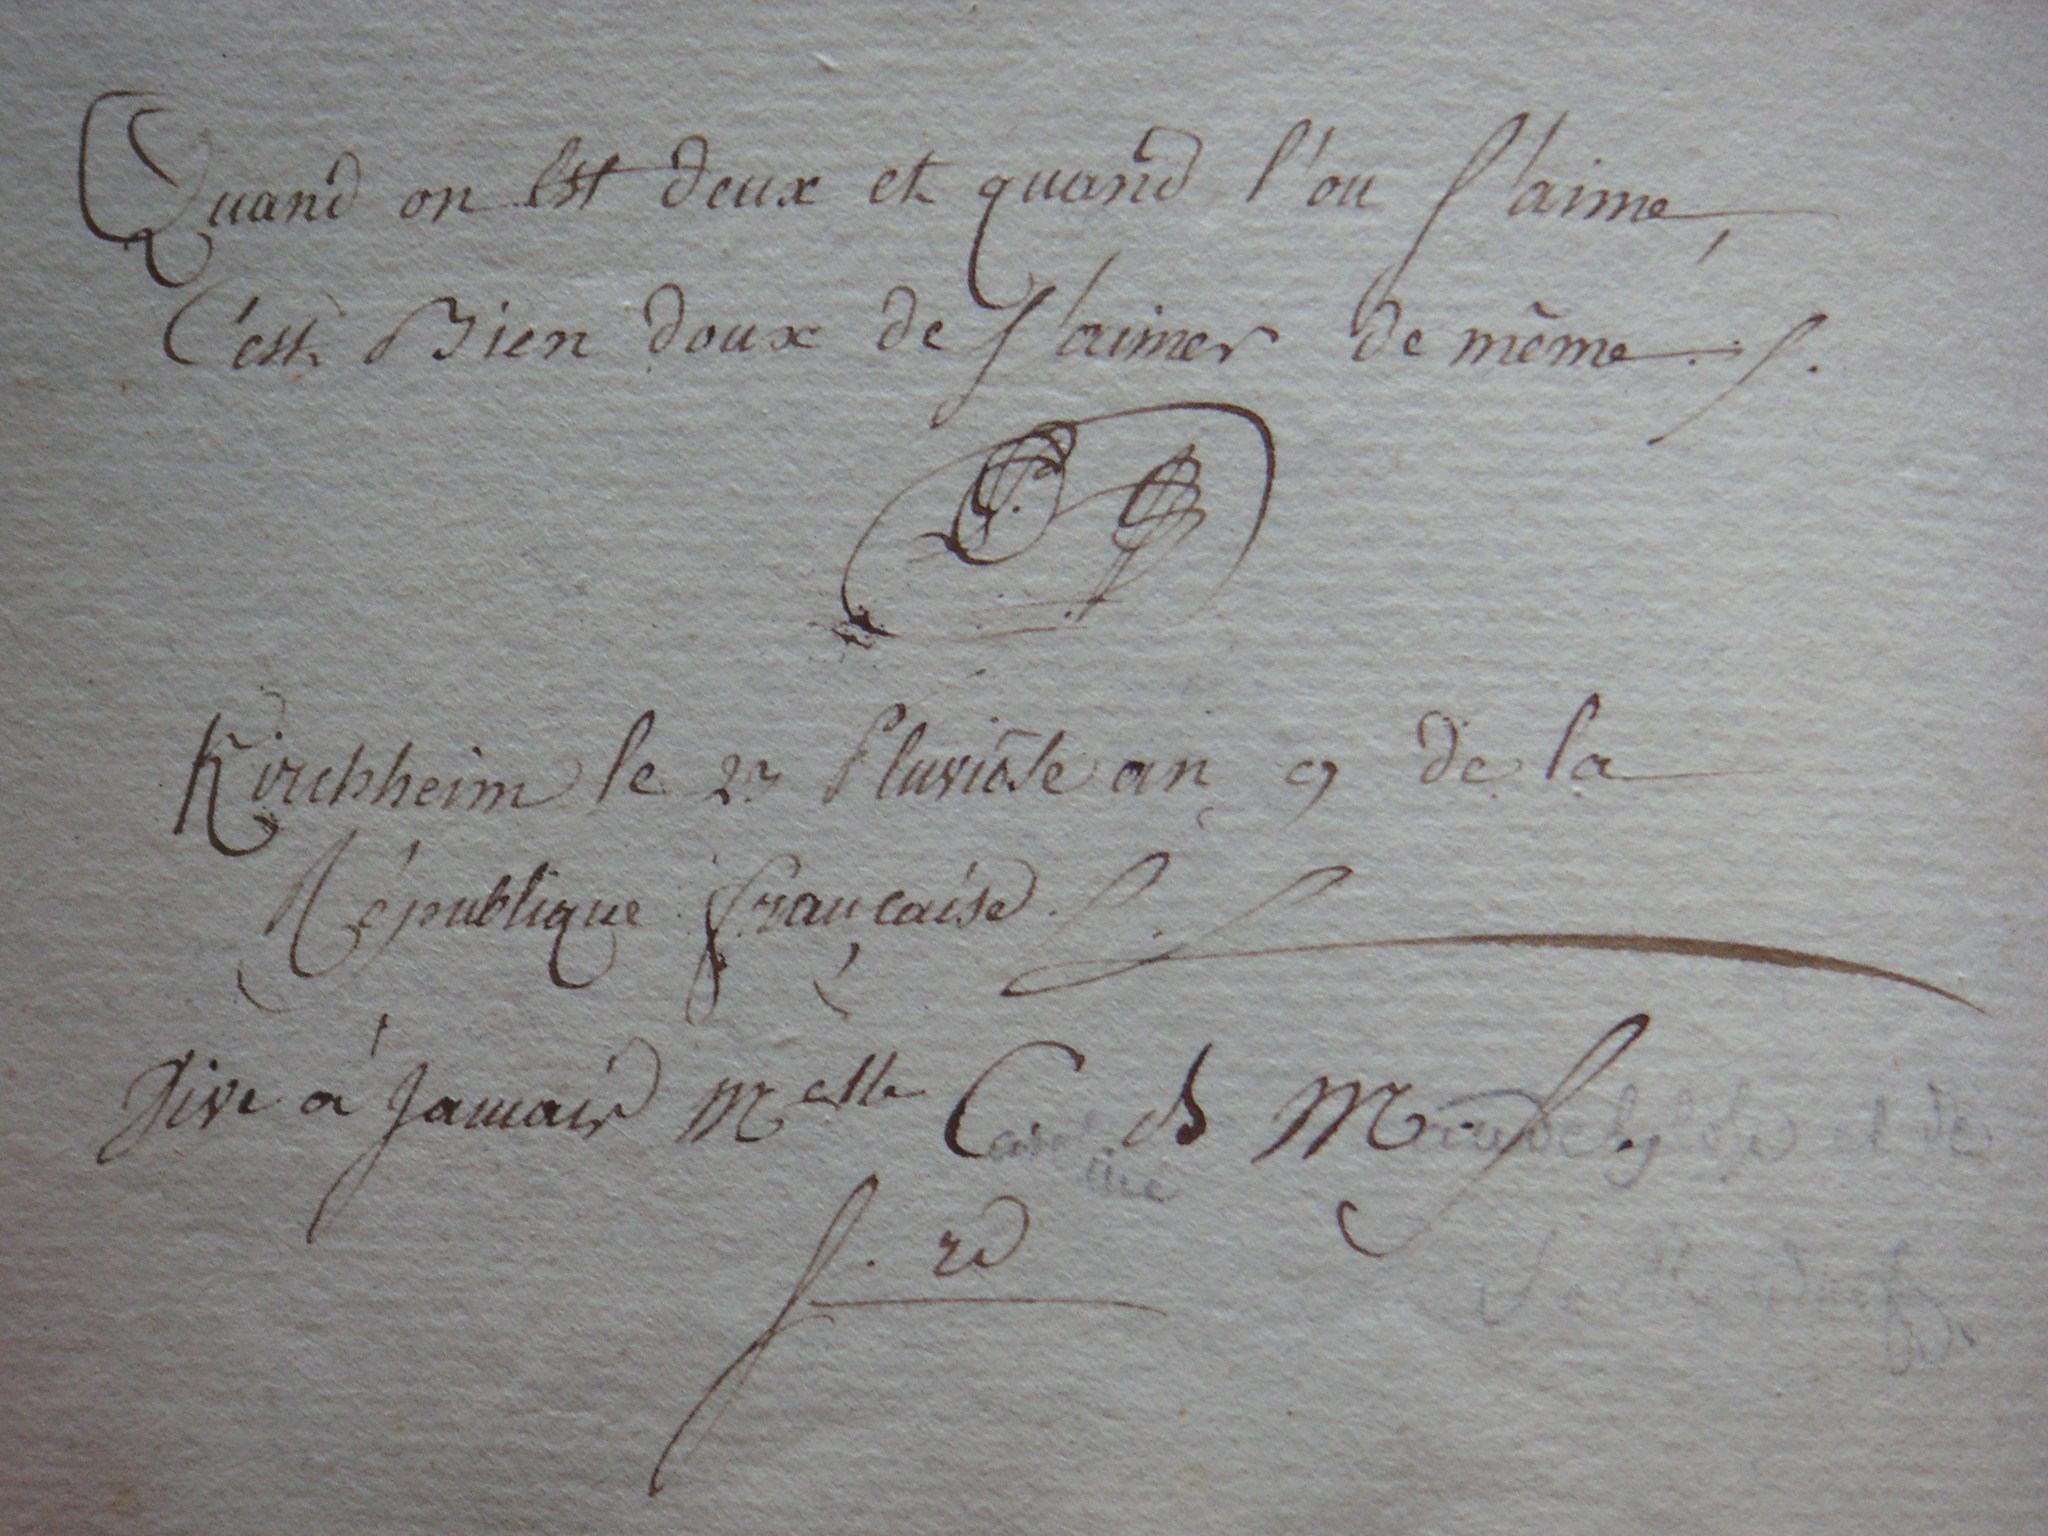 Quand on Est deux et quand l'on s'aime,
C'est Bien doux de s'aimer de même.
Kirchheim le 27 Pluviôse an 9 de la
République française.
Vive à Jamais Melle C et M